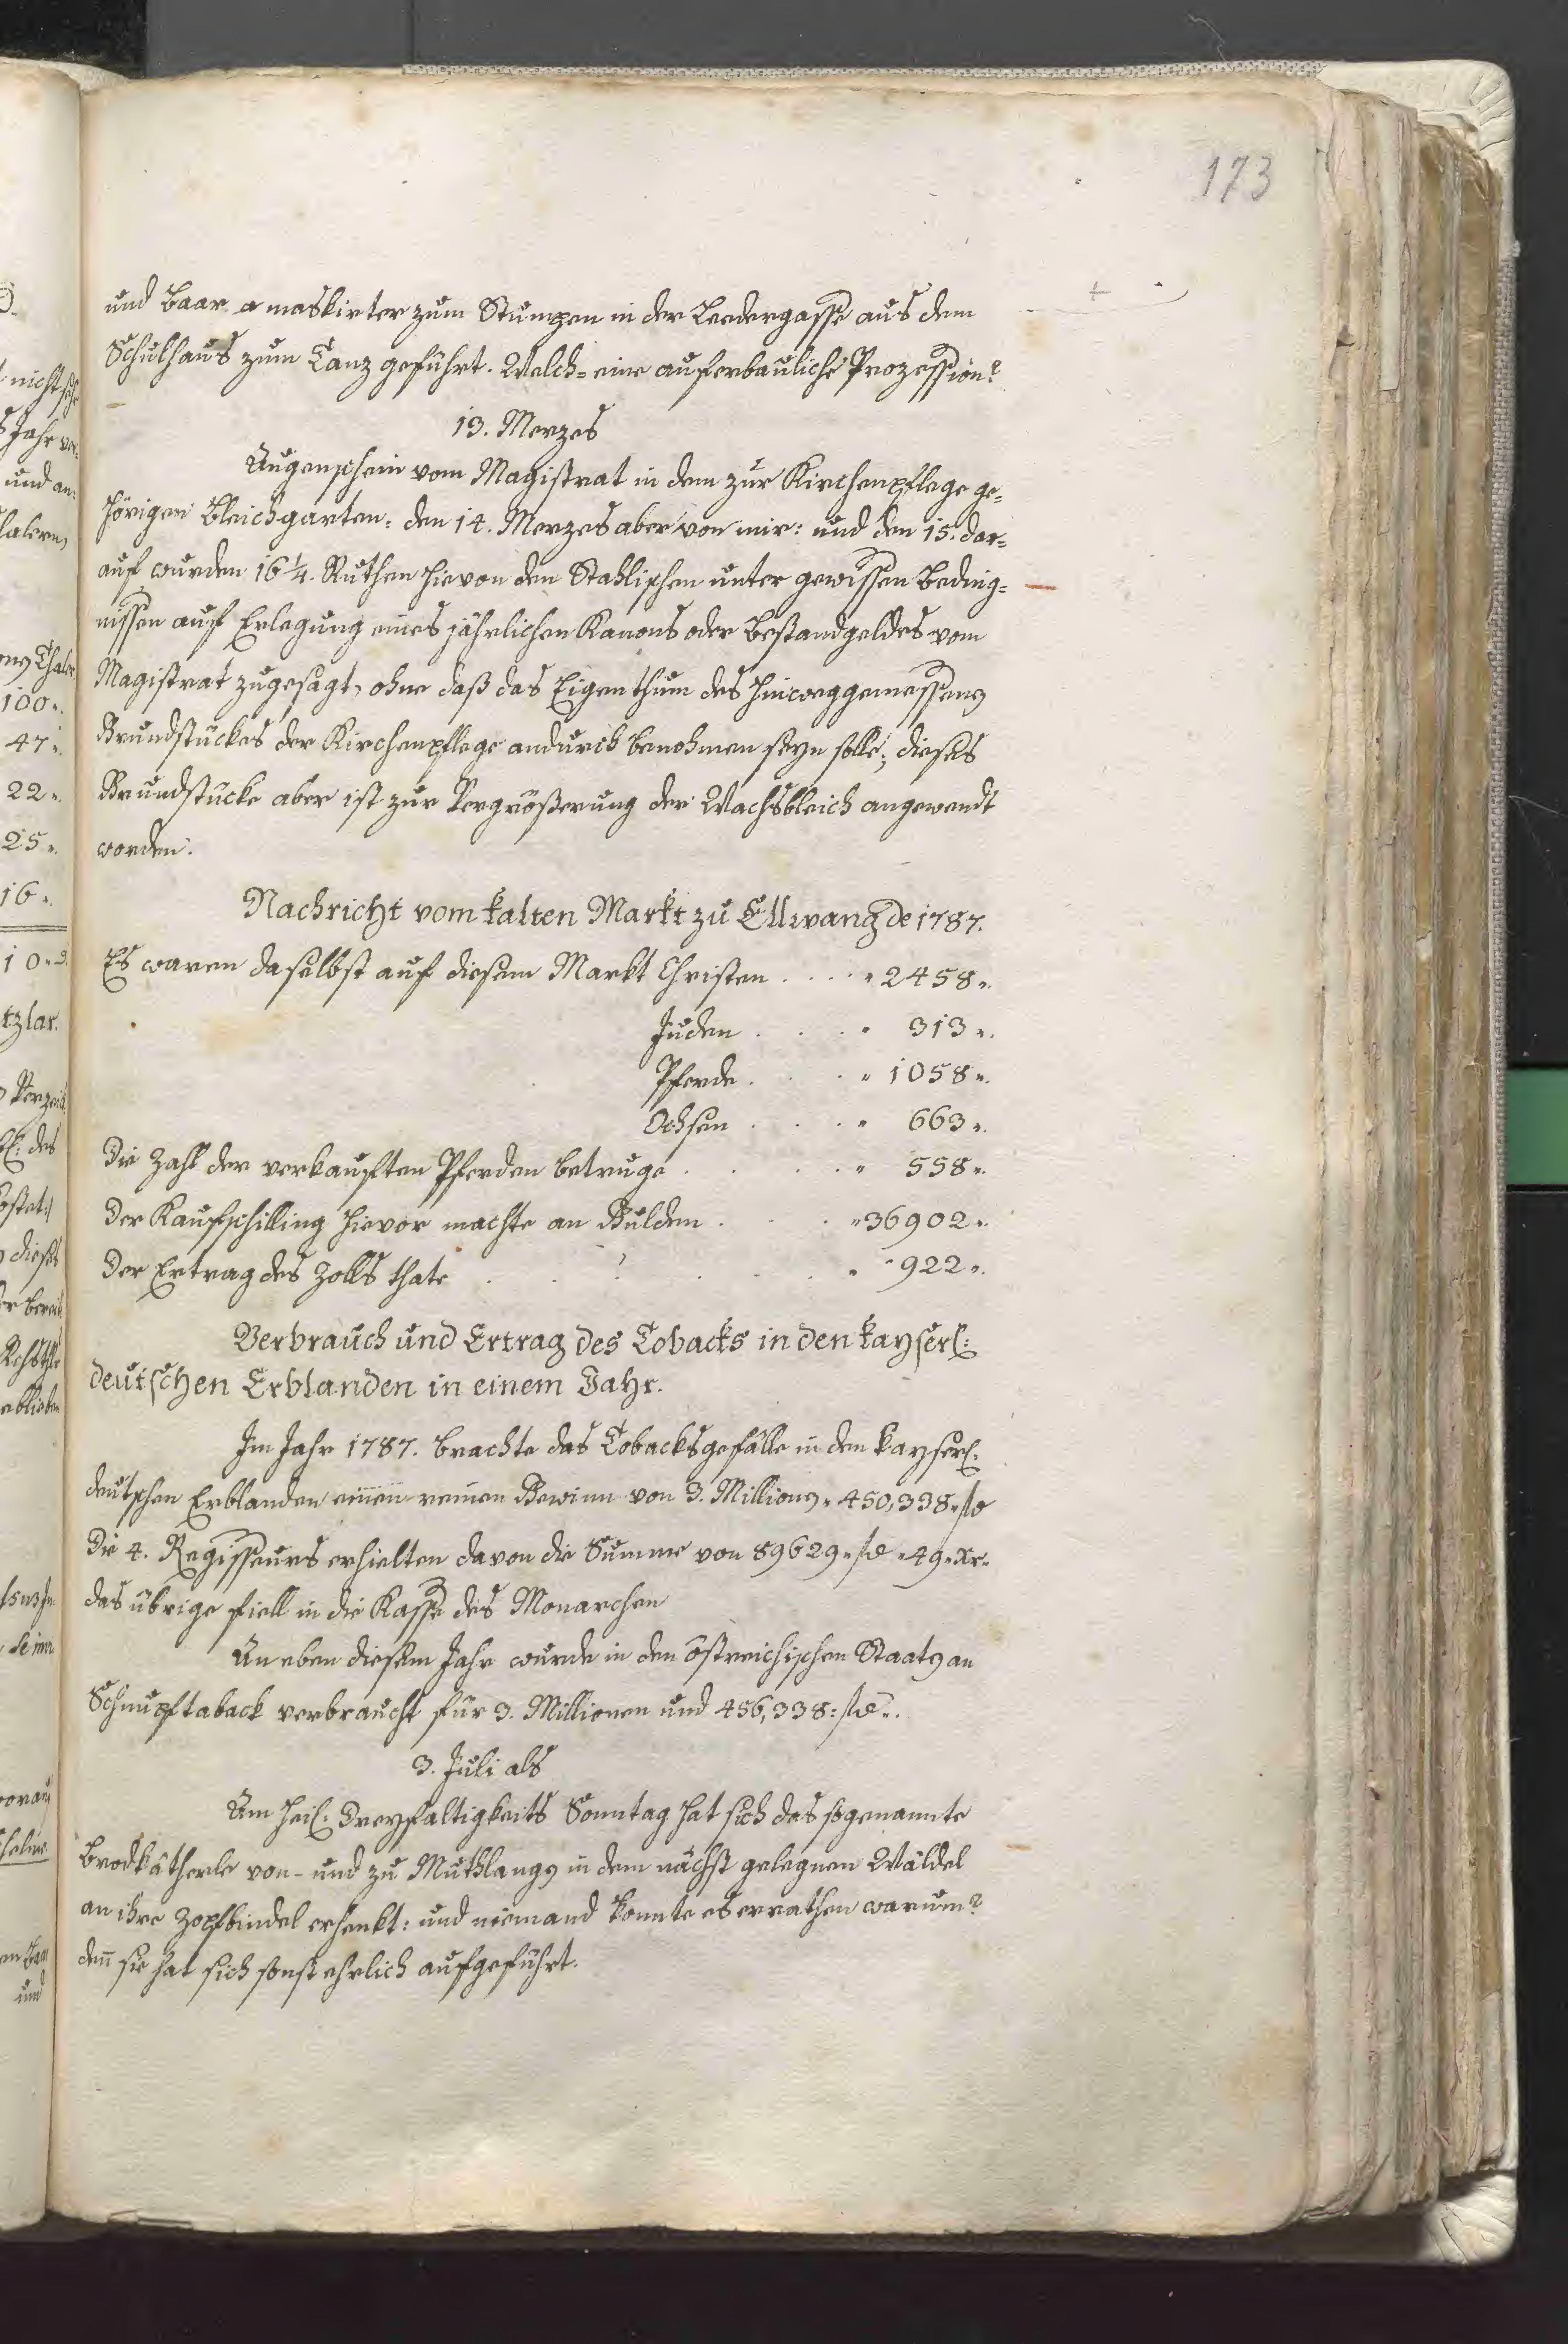 173
und Baar a maskirter zum Stumpen in der Ledergasse aus dem
Schulhaus zum Tanz geführt. Welch= eine auferbauliche Prozession?
13. Merzes
Augenschein vom Magistrat in dem zur Kirchenpflege ge=
hörigen Bleichgarten: den 14. Merzes aber von mir: und den 15. dar=
auf wurden 16 1/4. Ruthen hievon den Stahlischen unter gewissen Beding=
nissen auf Erlegung eines jährlichen Kanons oder Bestandgeldes vom
Magistrat zugesagt, ohne daß das Eigenthum des hinweggemessenen
Grundstückes der Kirchenpflege andurch benohmen seyn solle; dieses
Grundstücke aber ist zur Vergrößerung der Wachsbleich angewendt
worden.
Nachricht vom kalten Markt zu Ellwang de 1787.
Es waren daselbst auf diesem Markt Christen . . . . " 2458 ".
Juden . . . " 313 ".
Pferde . . . " 1058 ".
Ochsen . . . " 663 ".
Die Zahl der verkauften Pferden betruge . . . . " 558 ".
Der Kaufschilling hievor machte an Gulden . . . " 36902 ".
Der Ertrag des Zolls thate . . . . . . " 922 ".
Verbrauch und Ertrag des Tobacks in den kayserl:
deutschen Erblanden in einem Jahr.
Im Jahr 1787. brachte das Tobacksgefälle in den kayserl:
deutschen Erblanden einen reinen Gewinn von 3. Millionen " 450,338 " fl
Die 4. Regisseurs erhielten davon die Summe von 89629 " fl " 49 " Xr.
das übrige fiell in die Kasse des Monarchen
An eben diesem Jahr wurde in den östreichischen Staaten an
Schnupftaback verbraucht für 3. Millionen und 456,338: fl ".
3. Juli als
Am heil: Dreyfaltigkeits Sonntag hat sich das sogenannte
Brodkätherle von- und zu Muthlangen in dem nächst gelegnen Wäldel
an ihre Zopfbindel erhenkt: und niemand konnte es errathen warum?
den̄ sie hat sich sonst ehrlich aufgeführt.